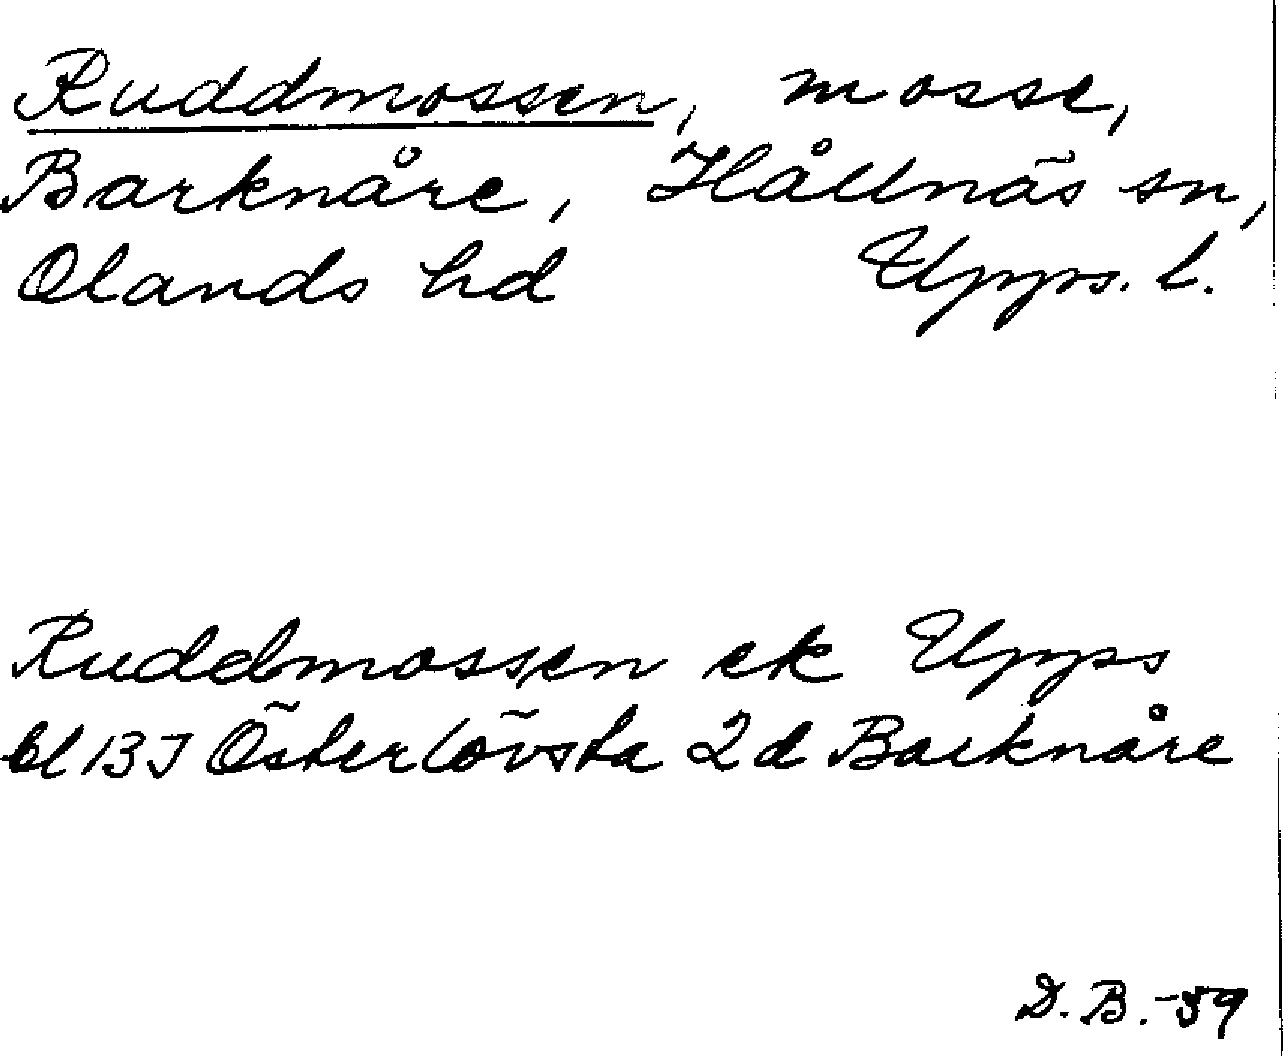 Ruddmossen, mosse,
Barknåre, Hållnäs sn,
Olands hd Upps. l.
Ruddmossen ek Upps
bl 13 J Österlövsta 2d Barknåre
D. B. -59